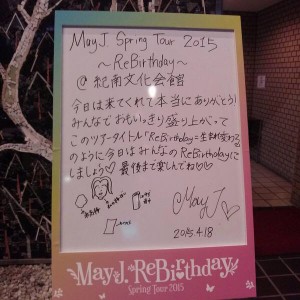 May J. Spring Tour 2015
~ReBirthday~
@ 紀南文化会館
今日は来てくれて本当にありがとう!
みんなでおもいっきり盛り上がって
このツアータイトル「ReBirthday=生まれ変わる」
のように今日はみんなのReBirthdayに
しましょう♡ 最後まで楽しんでね♡
May J.♡
2015 4.18
May J. ReBirthday
Spring Tour 2015